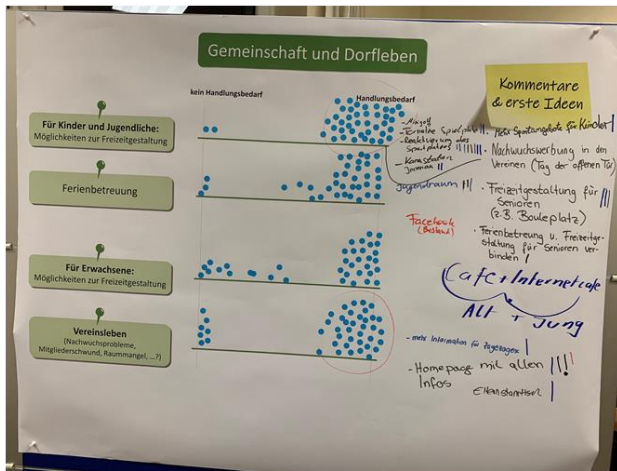 Gemeinschaft und Dorfleben
kein Handlungsbedarf
Handlungsbedarf
Kommentare
& erste Ideen
Für Kinder und Jugendliche:
Möglichkeiten zur Freizeitgestaltung
Ferienbetreuung
Für Erwachsene:
Möglichkeiten zur Freizeitgestaltung
Vereinsleben
(Nachwuchsprobleme,
Mitgliederschwund, Raummangel, ...?)
- Minigolf
Jugendraum
Facebook
- Mehr Sportangebote für Kinder
- Nachwuchswerbung in den
Vereinen (Tag der offenen Tür)
- Freizeitgestaltung für
Senioren
(z.B. Bouleplatz)
- Ferienbetreuung u. Freizeitge-
staltung für Senioren ver-
binden
Cafe + Internetcafe
Alt + Jung
- mehr Information für
- Homepage mit allen
Infos